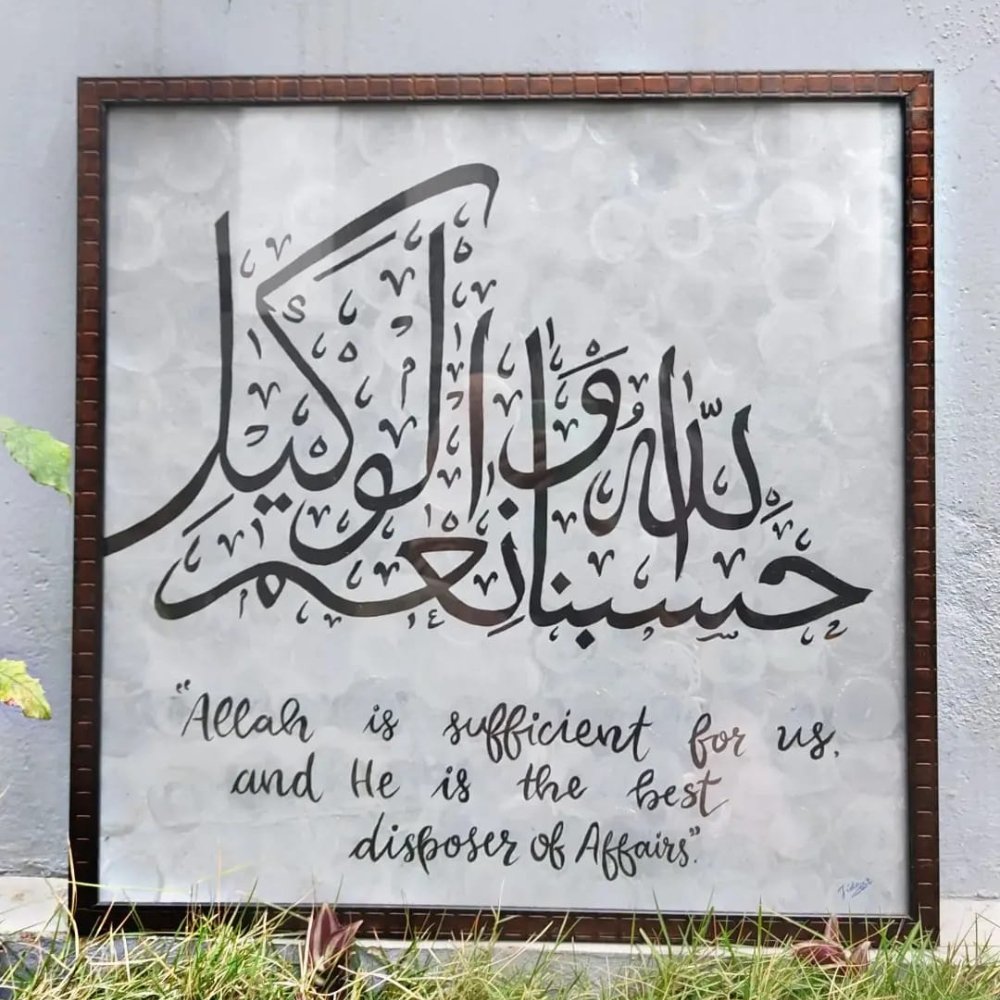 حسبنا الله ونعم الوكيل
“Allah is sufficient for us,
and He is the best
disposer of Affairs”.